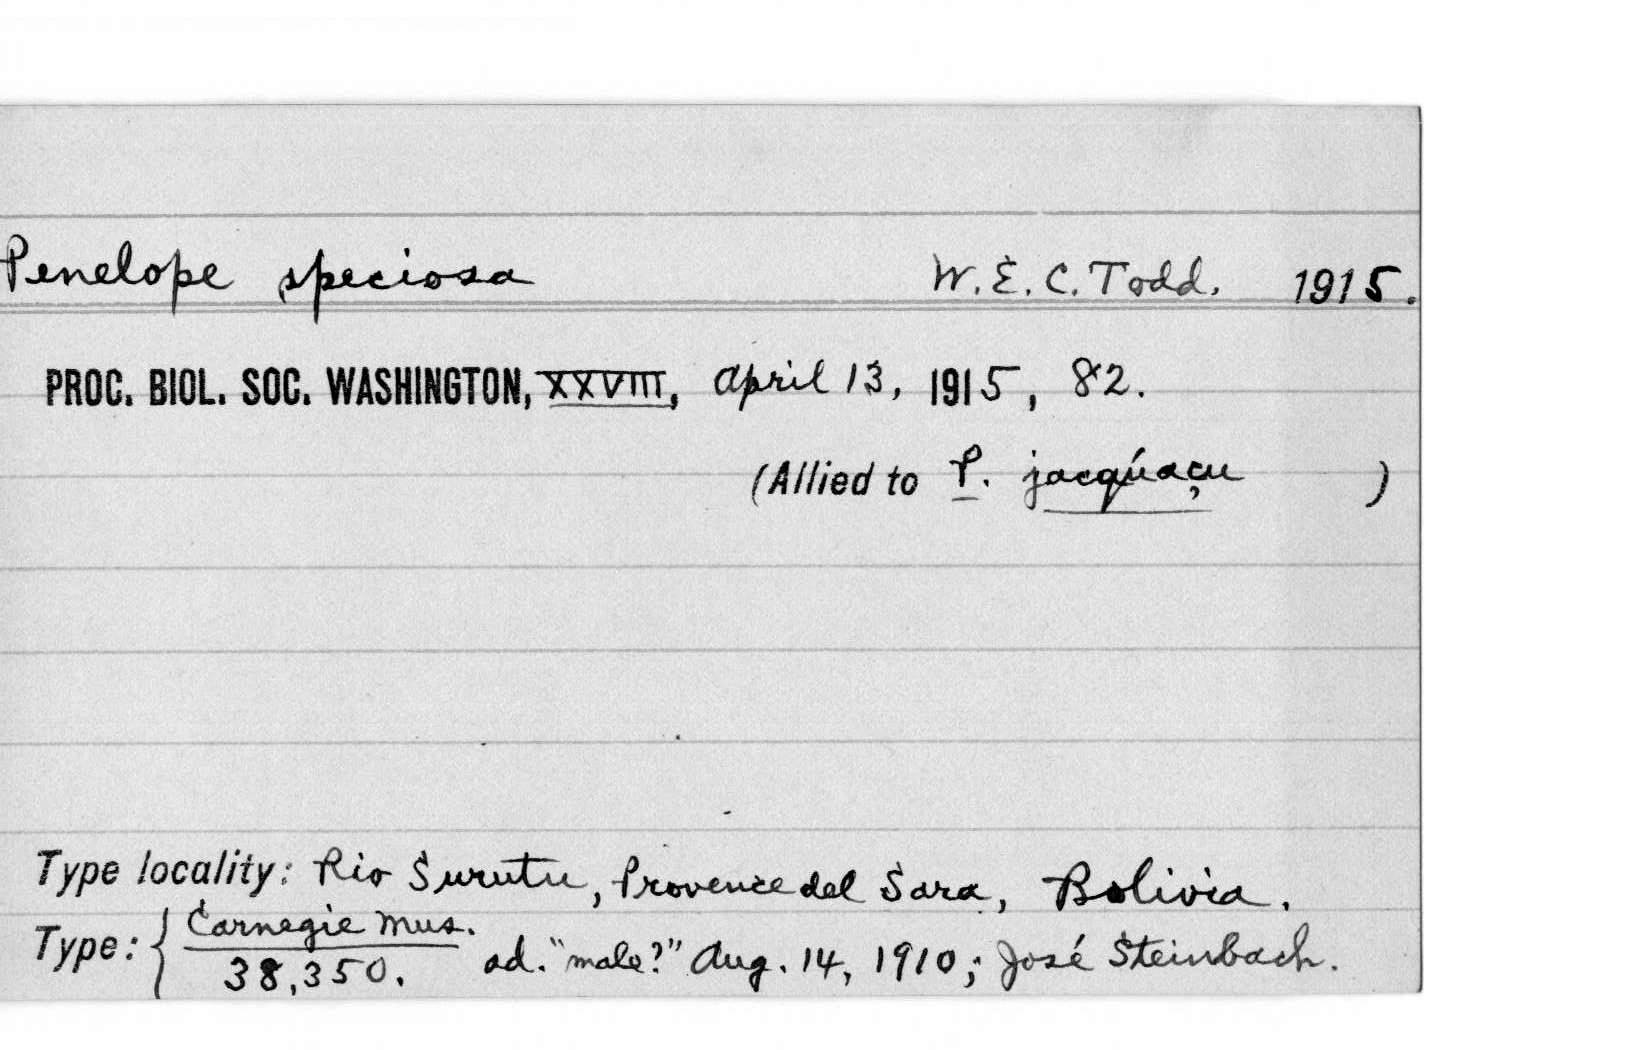 Penelope speciosa W. E. C. Todd. 1915.
PROC. BIOL. SOC. WASHINGTON, XXVIII, April 13, 1915, 82.
(Allied to P. jacqúaçu )
Type locality: Rio Surutu, Provence del Sara, Bolivia.
Type: { Carnegie Mus.
38,350. ad. "male?" Aug. 14, 1910; José Steinbach.